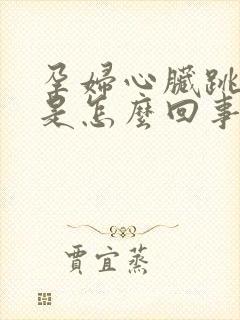 孕婦心臟跳
是怎麼回事
賈宜蒸